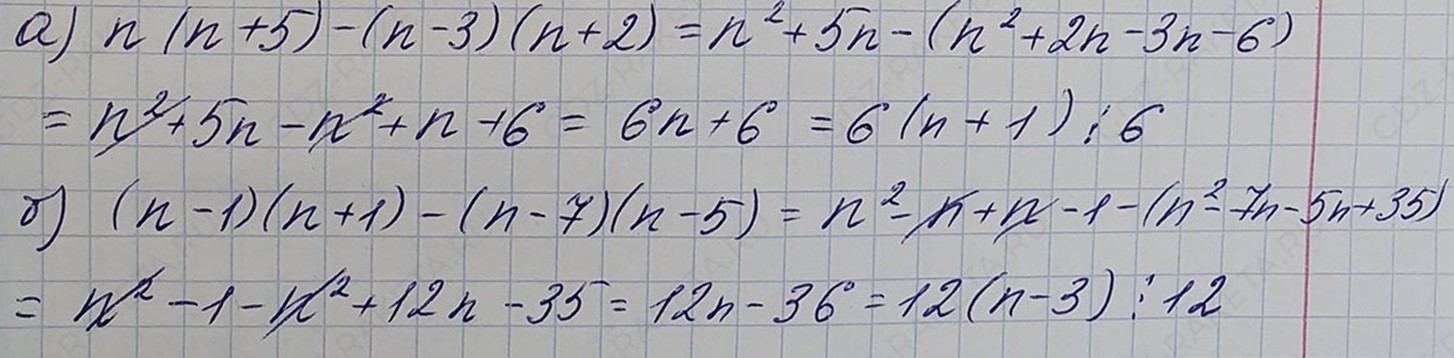 а) n(n+5)-(n-3)(n+2)=n²+5n-(n²+2n-3n-6)
=n²+5n-n²+n+6=6n+6=6(n+1)⋮6
б) (n-1)(n+1)-(n-7)(n-5)=n²-n+n-1-(n²-7n-5n+35)
=n²-1-n²+12n-35=12n-36=12(n-3)⋮12